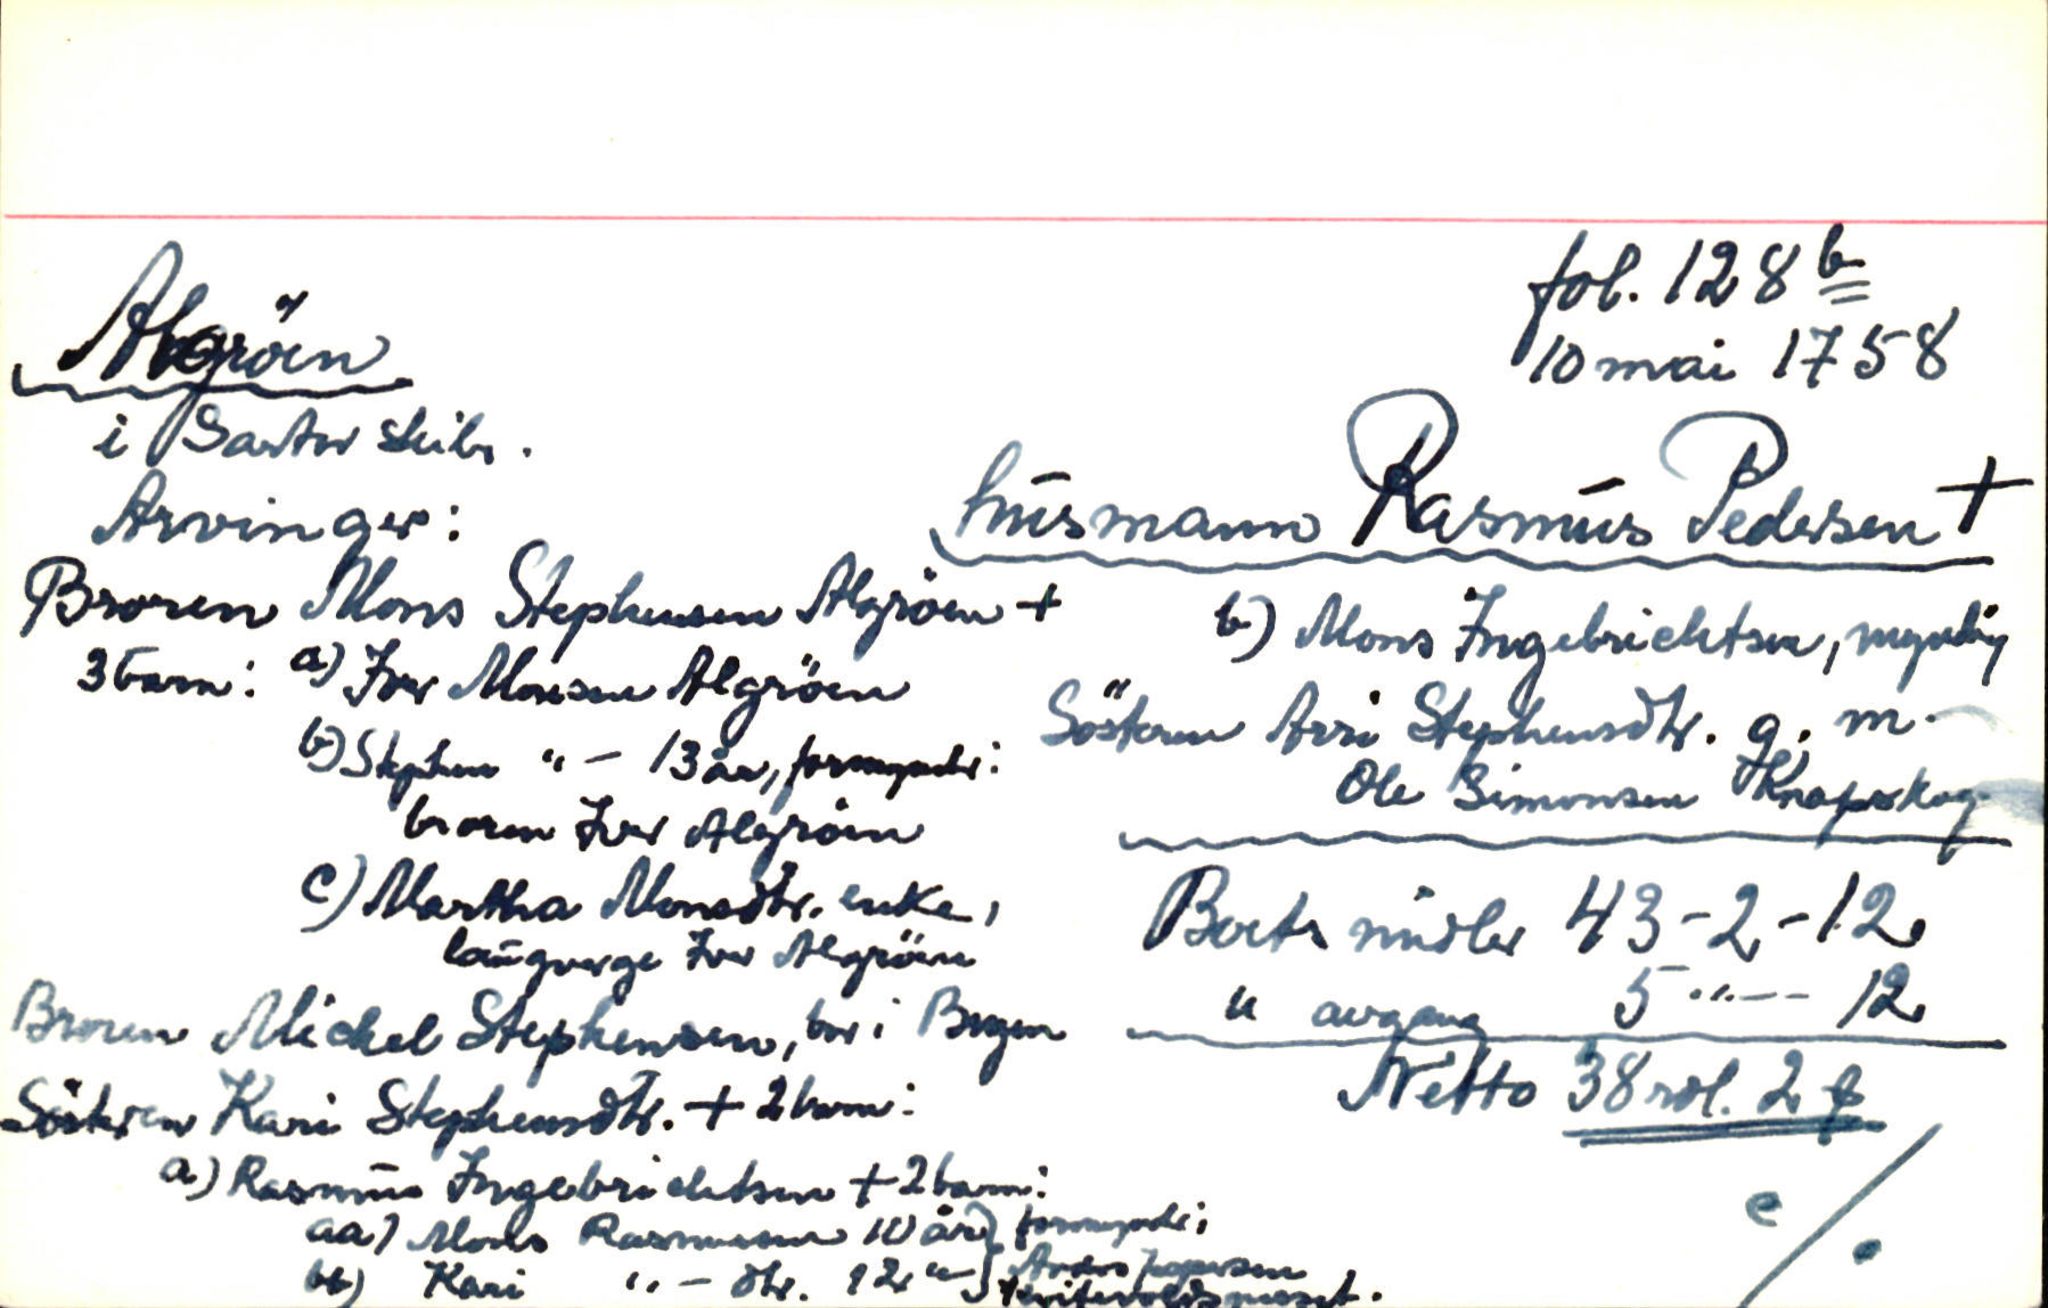 fol. 128 b
10 mai 1758
Algröen
i Sartor skibr.
husmann Rasmus Pedersen +
Arvinger:
Broren Mons Stephensen Algröen +
3 barn: a) Iver Monsen Algröen
b) Stephen " - 13 år, formynder:
broren Iver Algröen
c) Martha Monsdtr. enke,
laugverge Iver Algröen
Broren Mickel Stephensen, bor i Bergen
Sösteren Kari Stephensdtr. + 2 barn:
a) Rasmus Ingebrichtsen + 2 barn:
aa) Mons Rasmussen 10 år } formynder:
bb) Kari " - dtr. 12 " } Anders
b) Mons Ingebrichtsen, myndig
Sösteren Anni Stephensdtr. g. m.
Ole Simonsen Knapskog
Boets midler 43 - 2 - 12
" avgang 5 " -- 12
Netto 38 rdl. 2